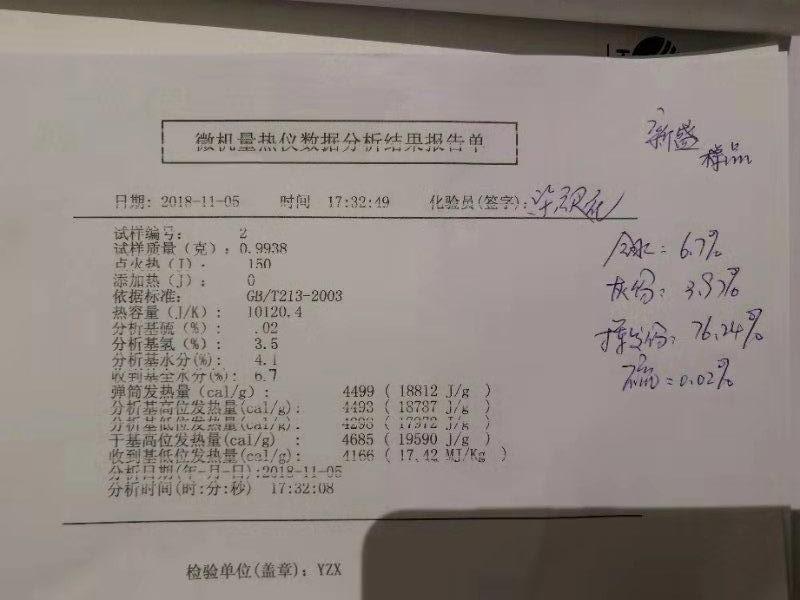 微机量热仪数据分析结果报告单
新盛
样品
日期: 2018-11-05 时间 17:32:49 化验员(签字):
试样编号: 2
试样质量(克): 0.9938
点火热(J): 150
添加热(J): 0
依据标准: GB/T213-2003
热容量(J/K): 10120.4
分析基硫(%): .02
分析基氢(%): 3.5
分析基水分(%): 4.1
收到基全水分(%): 6.7
弹筒发热量(cal/g): 4499 ( 18812 J/g )
分析基高位发热量(cal/g): 4493 ( 18787 J/g )
分析基低位发热量(cal/g): 4298 ( 17972 J/g )
干基高位发热量(cal/g) : 4685 ( 19590 J/g )
收到基低位发热量(cal/g): 4166 ( 17.42 MJ/Kg )
分析日期(年-月-日):2018-11-05
分析时间(时:分:秒) 17:32:08
全水: 6.7%
灰份: 3.93%
挥发份: 76.24%
硫=0.02%
检验单位(盖章): YZX